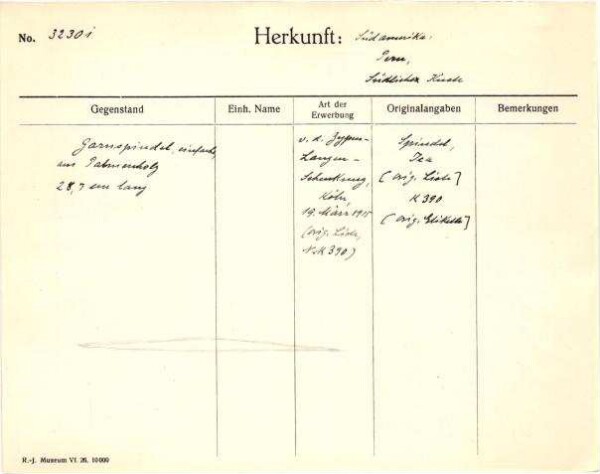 No. 3230i
Herkunft: Südamerika:
Peru,
Südliche Küste
Gegenstand
Einh. Name
Art der Erwerbung
Originalangaben
Bemerkungen
Garnspindel, einfache,
aus Palmenholz
28,7 cm lang
v. d. Zypen-
Langen-
Schenkung,
Köln,
19. März 1915
(orig. Liste,
N. K 390)
Spindel,
Ica
(orig. Liste]
K 390
(orig. Etikette]
R.-J. Museum VI. 26. 10000